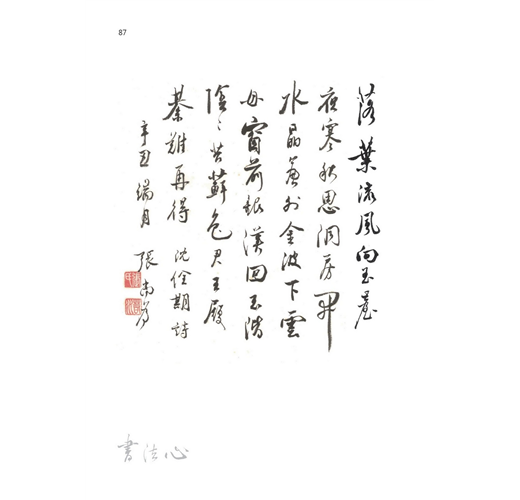 87
落葉流風向玉臺
夜寒秋思洞房開
水晶簾外金波下雲
母窗前銀漢回玉階
陰〻苔蘚色君王履
綦難再得 沈佺期詩
辛丑 端月 張
書法心